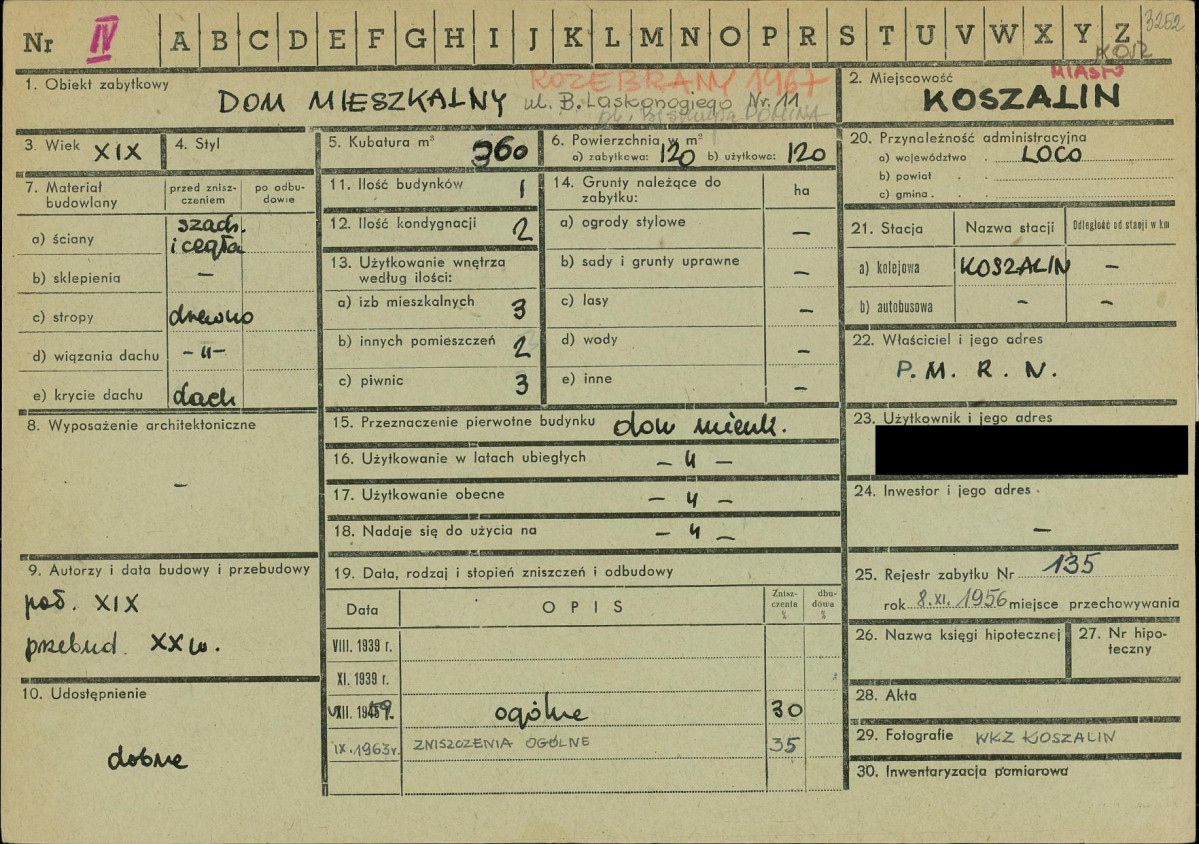 3252
Nr IV A B C D E F G H I J K L M N O P R S T U V W X Y Z
KOR
MIASTO
1. Obiekt zabytkowy
ROZEBRANY 1967
DOM MIESZKALNY ul. B. Laskonogiego Nr. 11
2. Miejscowość
KOSZALIN
3. Wiek XIX
4. Styl
5. Kubatura m³ 360
6. Powierzchnia w m²
a) zabytkowa: 120 b) użytkowa: 120
7. Materiał budowlany
przed zniszczeniem
po odbudowie
a) ściany szach. i cegła
b) sklepienia –
c) stropy drewno
d) wiązania dachu –"–
e) krycie dachu dach
8. Wyposażenie architektoniczne
–
9. Autorzy i data budowy i przebudowy
poł. XIX
przebud. XX w.
10. Udostępnienie
dobre
11. Ilość budynków 1
12. Ilość kondygnacji 2
13. Użytkowanie wnętrza według ilości:
a) izb mieszkalnych 3
b) innych pomieszczeń 2
c) piwnic 3
14. Grunty należące do zabytku:
ha
a) ogrody stylowe –
b) sady i grunty uprawne –
c) lasy –
d) wody –
e) inne –
15. Przeznaczenie pierwotne budynku dom mieszk.
16. Użytkowanie w latach ubiegłych – " –
17. Użytkowanie obecne – " –
18. Nadaje się do użycia na – " –
19. Data, rodzaj i stopień zniszczeń i odbudowy
Data
OPIS
Zniszczenia %
dbudowa %
VIII. 1939 r.
XI. 1939 r.
ogólne 30
IX. 1963 r. ZNISZCZENIA OGÓLNE 35
20. Przynależność administracyjna
a) województwo LOCO
b) powiat
c) gmina
21. Stacja
Nazwa stacji
Odległość od stacji w km
a) kolejowa KOSZALIN –
b) autobusowa – –
22. Właściciel i jego adres
P. M. R. N.
23. Użytkownik i jego adres
24. Inwestor i jego adres
–
25. Rejestr zabytku Nr 135
rok 8.XI. 1956 miejsce przechowywania
26. Nazwa księgi hipotecznej
27. Nr hipoteczny
28. Akta
29. Fotografie WKZ KOSZALIN
30. Inwentaryzacja pomiarowa